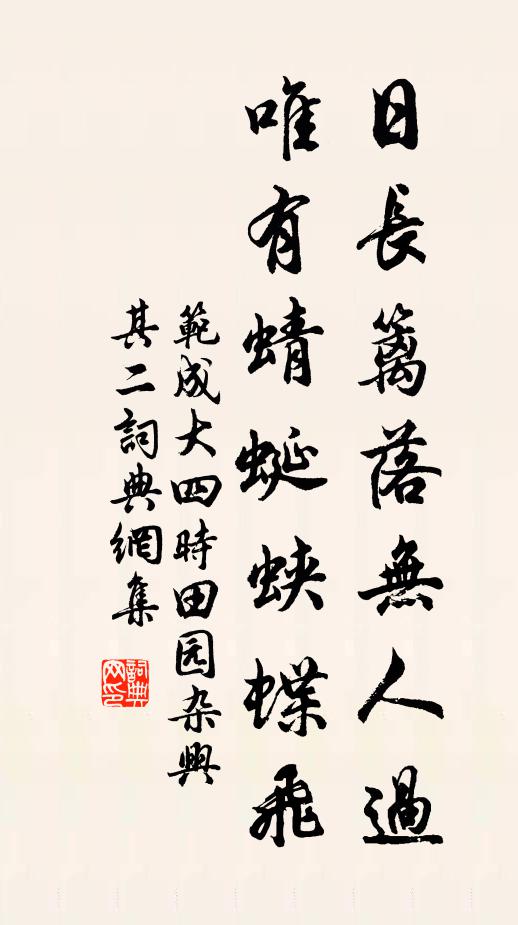 日長籬落無人過
唯有蜻蜓蛺蝶飛
範成大四時田园杂興
其二詞典網集
詞典網印